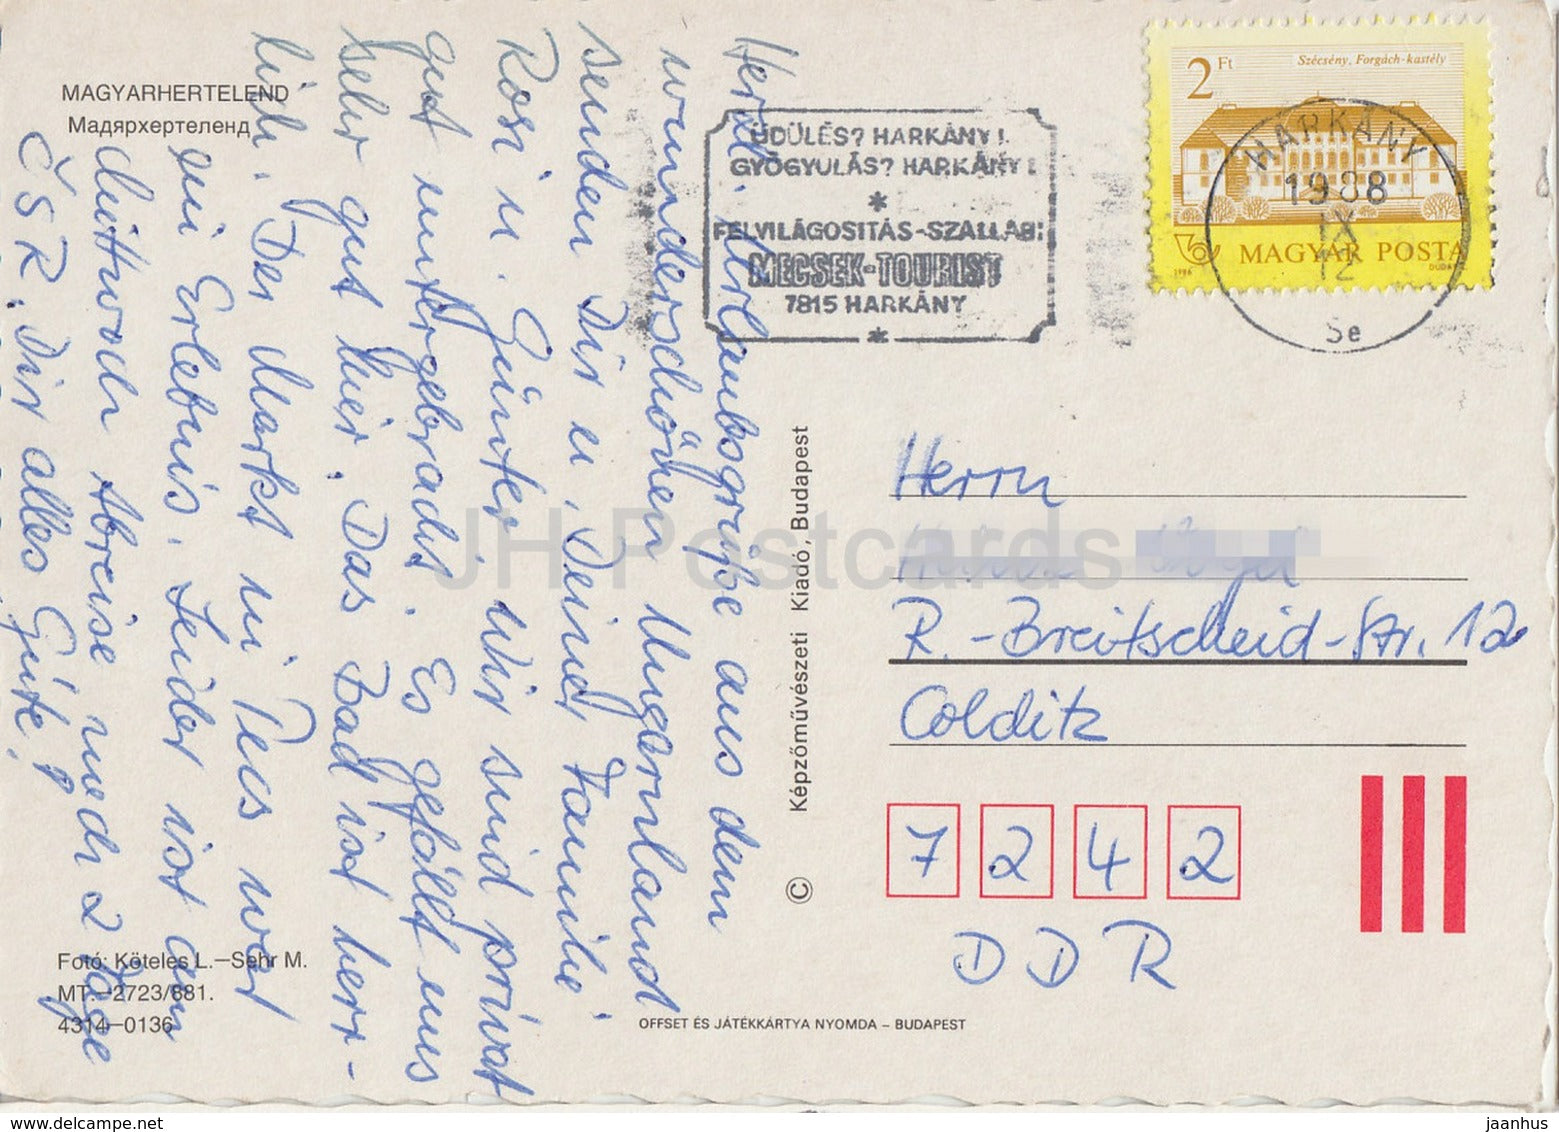 MAGYARHERTELEND
Мадярхертеленд
Herzl. Urlaubsgrüße aus dem
wunderschönen Ungarnland
senden Dir u. Deiner Familie
Rosi u. Günter. Wir sind privat
gut untergebracht. Es gefällt uns
sehr gut hier. Das Bad ist herr-
lich. Der Markt in Pecs war
ein Erlebnis. Leider ist am
Mittwoch Abreise noch 2 Tage
ČSR. Dir alles Gute!
Fotó: Köteles L.—Sehr M.
MT.—2723/881.
4314—0136
© Képzőművészeti Kiadó, Budapest
OFFSET ÉS JÁTÉKKÁRTYA NYOMDA – BUDAPEST
ÜDÜLÉS? HARKÁNY!
GYÓGYULÁS? HARKÁNY!
*
FELVILÁGOSITÁS-SZÁLLÁS:
MECSEK-TOURIST
7815 HARKÁNY
*
2 Ft
Szécsény, Forgách-kastély
MAGYAR POSTA
1986
HARKÁNY
1988
IX
12
Se
Herrn
R.-Breitscheid-Str. 12
Colditz
7242
DDR
JH Postcards
www.delcampe.net
jaanhus